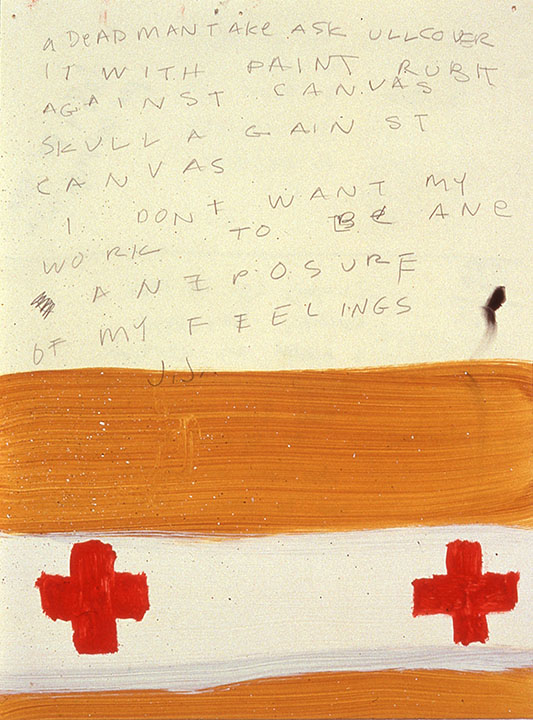 a DeAD MAN TAKE ASK ULLCOVER
IT WITH PAINT RUBIT
AGAINST CANVAS
SKULL AGAINST
CANVAS
I DONT WANT MY
WORK TO BE AN E
AN EXPOSURE
OF MY FEELINGS
J.J.